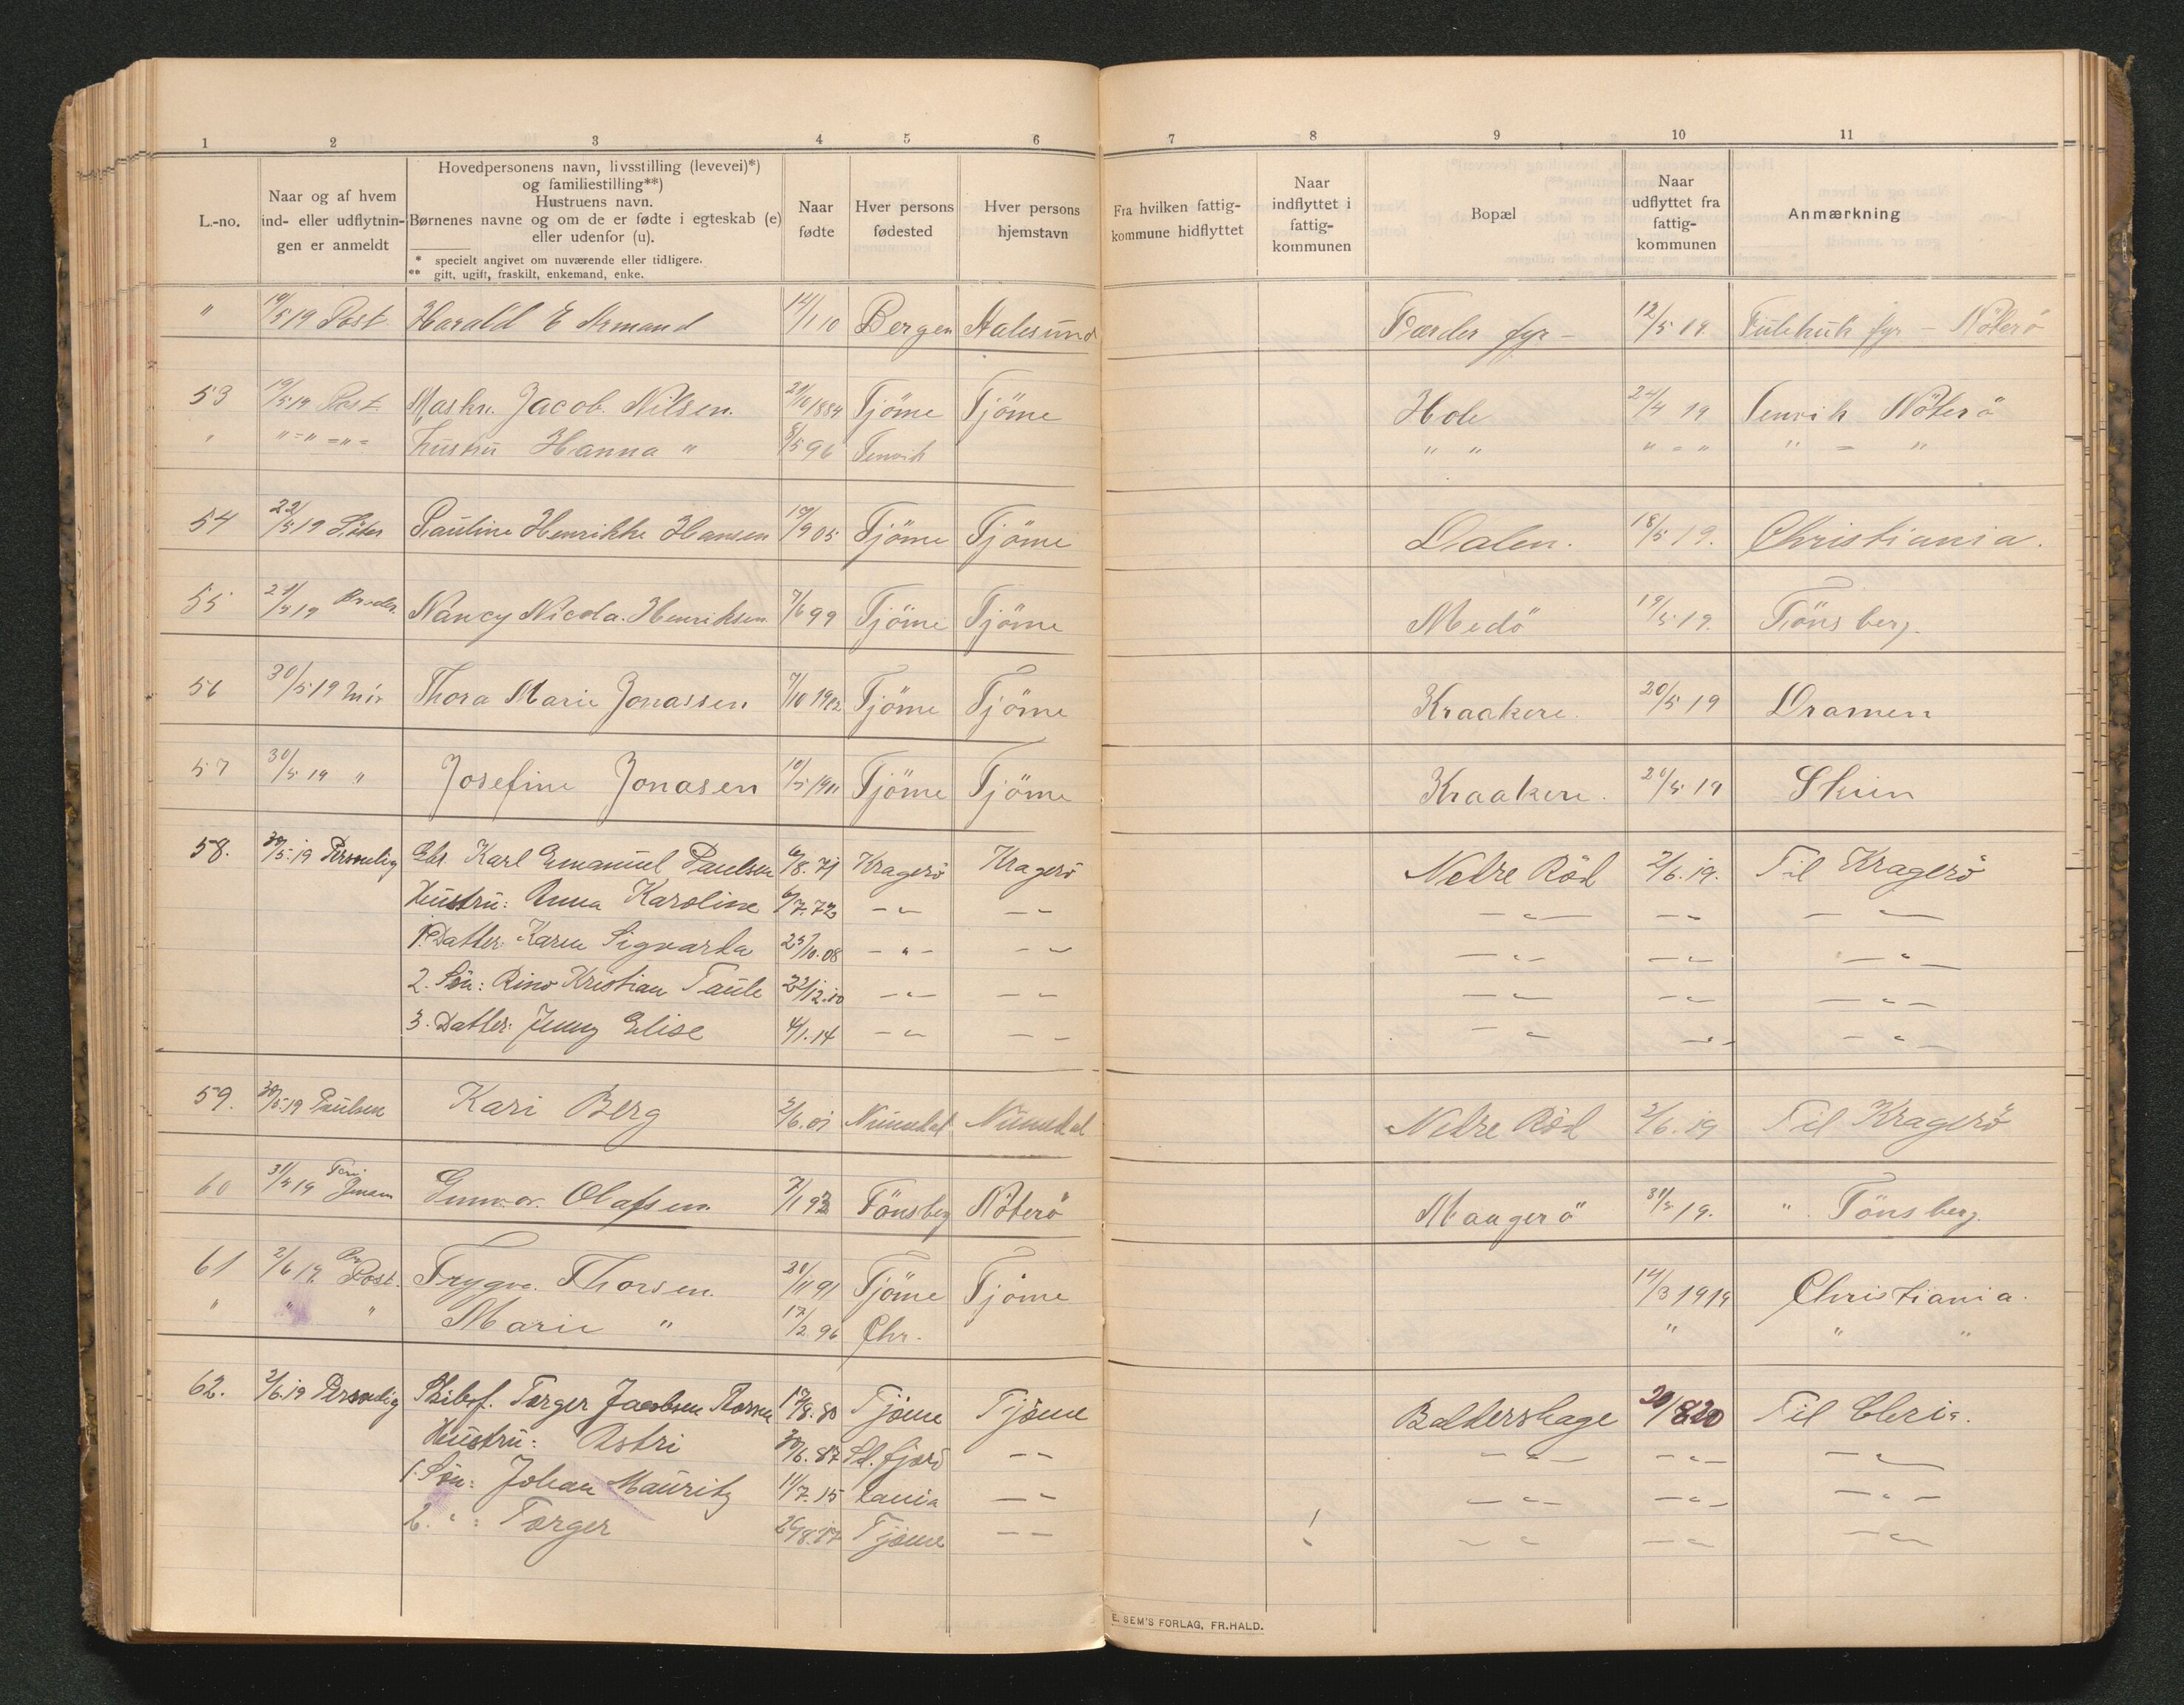 1 2 3 4 5 6 7 8 9 10 11
L.-no.
Naar og af hvem
ind- eller udflytnin-
gen er anmeldt
Hovedpersonens navn, livsstilling (levevei)*)
og familiestilling**)
Hustruens navn.
Børnenes navne og om de er fødte i egteskab (e)
eller udenfor (u).
* specielt angivet om nuværende eller tidligere.
** gift, ugift, fraskilt, enkemand, enke.
Naar
fødte
Hver persons
fødested
Hver persons
hjemstavn
Fra hvilken fattig-
kommune hidflyttet
Naar
indflyttet i
fattig-
kommunen
Bopæl
Naar
udflyttet fra
fattig-
kommunen
Anmærkning
" 19/5 19 Post Harald E Armand 14/1 10 Bergen Aalesund Færder fyr - 12/5 19. Fulehuk fyr - Nöterö
53 19/5 19 Post Maskn. Jacob. Nilsen. 1884 Tjöme Tjöme Hole 24/4 19 Tenvik Nöterö
" " = " = " = Hustru Hanna " 8/5 96 Tenvik " " " = " " = "
54 22/5 19 Pauline Henrikke Hansen 05 Tjöme Tjöme Dalen. 18/5 19. Christiania.
55 Nancy Nicola. Henriksen 7/6 99 Tjöme Tjöme Medö 19/5 19. Tönsberg.
56 30/5 19 Mor Thora Marie Jonassen 7/10 1902 Tjöme Tjöme Kraakere. 20/5 19 Dramen
57 30/5 19 " Josefine Jonasen 10/5 1911 Tjöme Tjöme Kraakere. 20/5 19 Skien
58. 30/5.19 Personlig Karl Emanuel Paulsen 6/8.71 Kragerö Kragerö Nedre Röd 2/6.19. Til Kragerö
Hustru: Anna Karoline 6/7.72 - " - - " - - " - - " - - " -
1. Datter: Karen Sigvarda 25/10.08 - " - - " - - " - - " - - " -
2. Sön: Rino Kristian Taule 22/12.10 - " - - " - - " - - " - - " -
3. Datter: Jenny Elise 4/1.14 - " - - - - " - " - - " -
59. 30/5.19 Paulsen Kari Berg 2/6.01 Numedal Numedal Nedre Röd 2/6.19 Til Kragerö
60 31/5 19 Gunvor. Olafsen. 7/1 93 Tönsberg Nöterö Maagerö 31/5 19. " Tönsberg.
61 2/6 19 Post. Trygve. Thorsen. 91 Tjöme Tjöme 14/3 1919 Christiania.
" " " Marie " 17/2 96 Chr. " " "
62. 2/6.19 Personlig Skibsf. Tørger Jacobsen 80 Tjøme Tjøme Baldershage 20/8 20 Til Chria.
Hustru: Astri 30/6.87 Sd.fjord - - - " - - " - - " -
1. Sön: Johan Mauritz 11/7.15 - " - " - - " - - " -
2. " : Tørger 26/8.17 Tjøme - - - " - " - - " -
E. SEM'S FORLAG, FR.HALD.